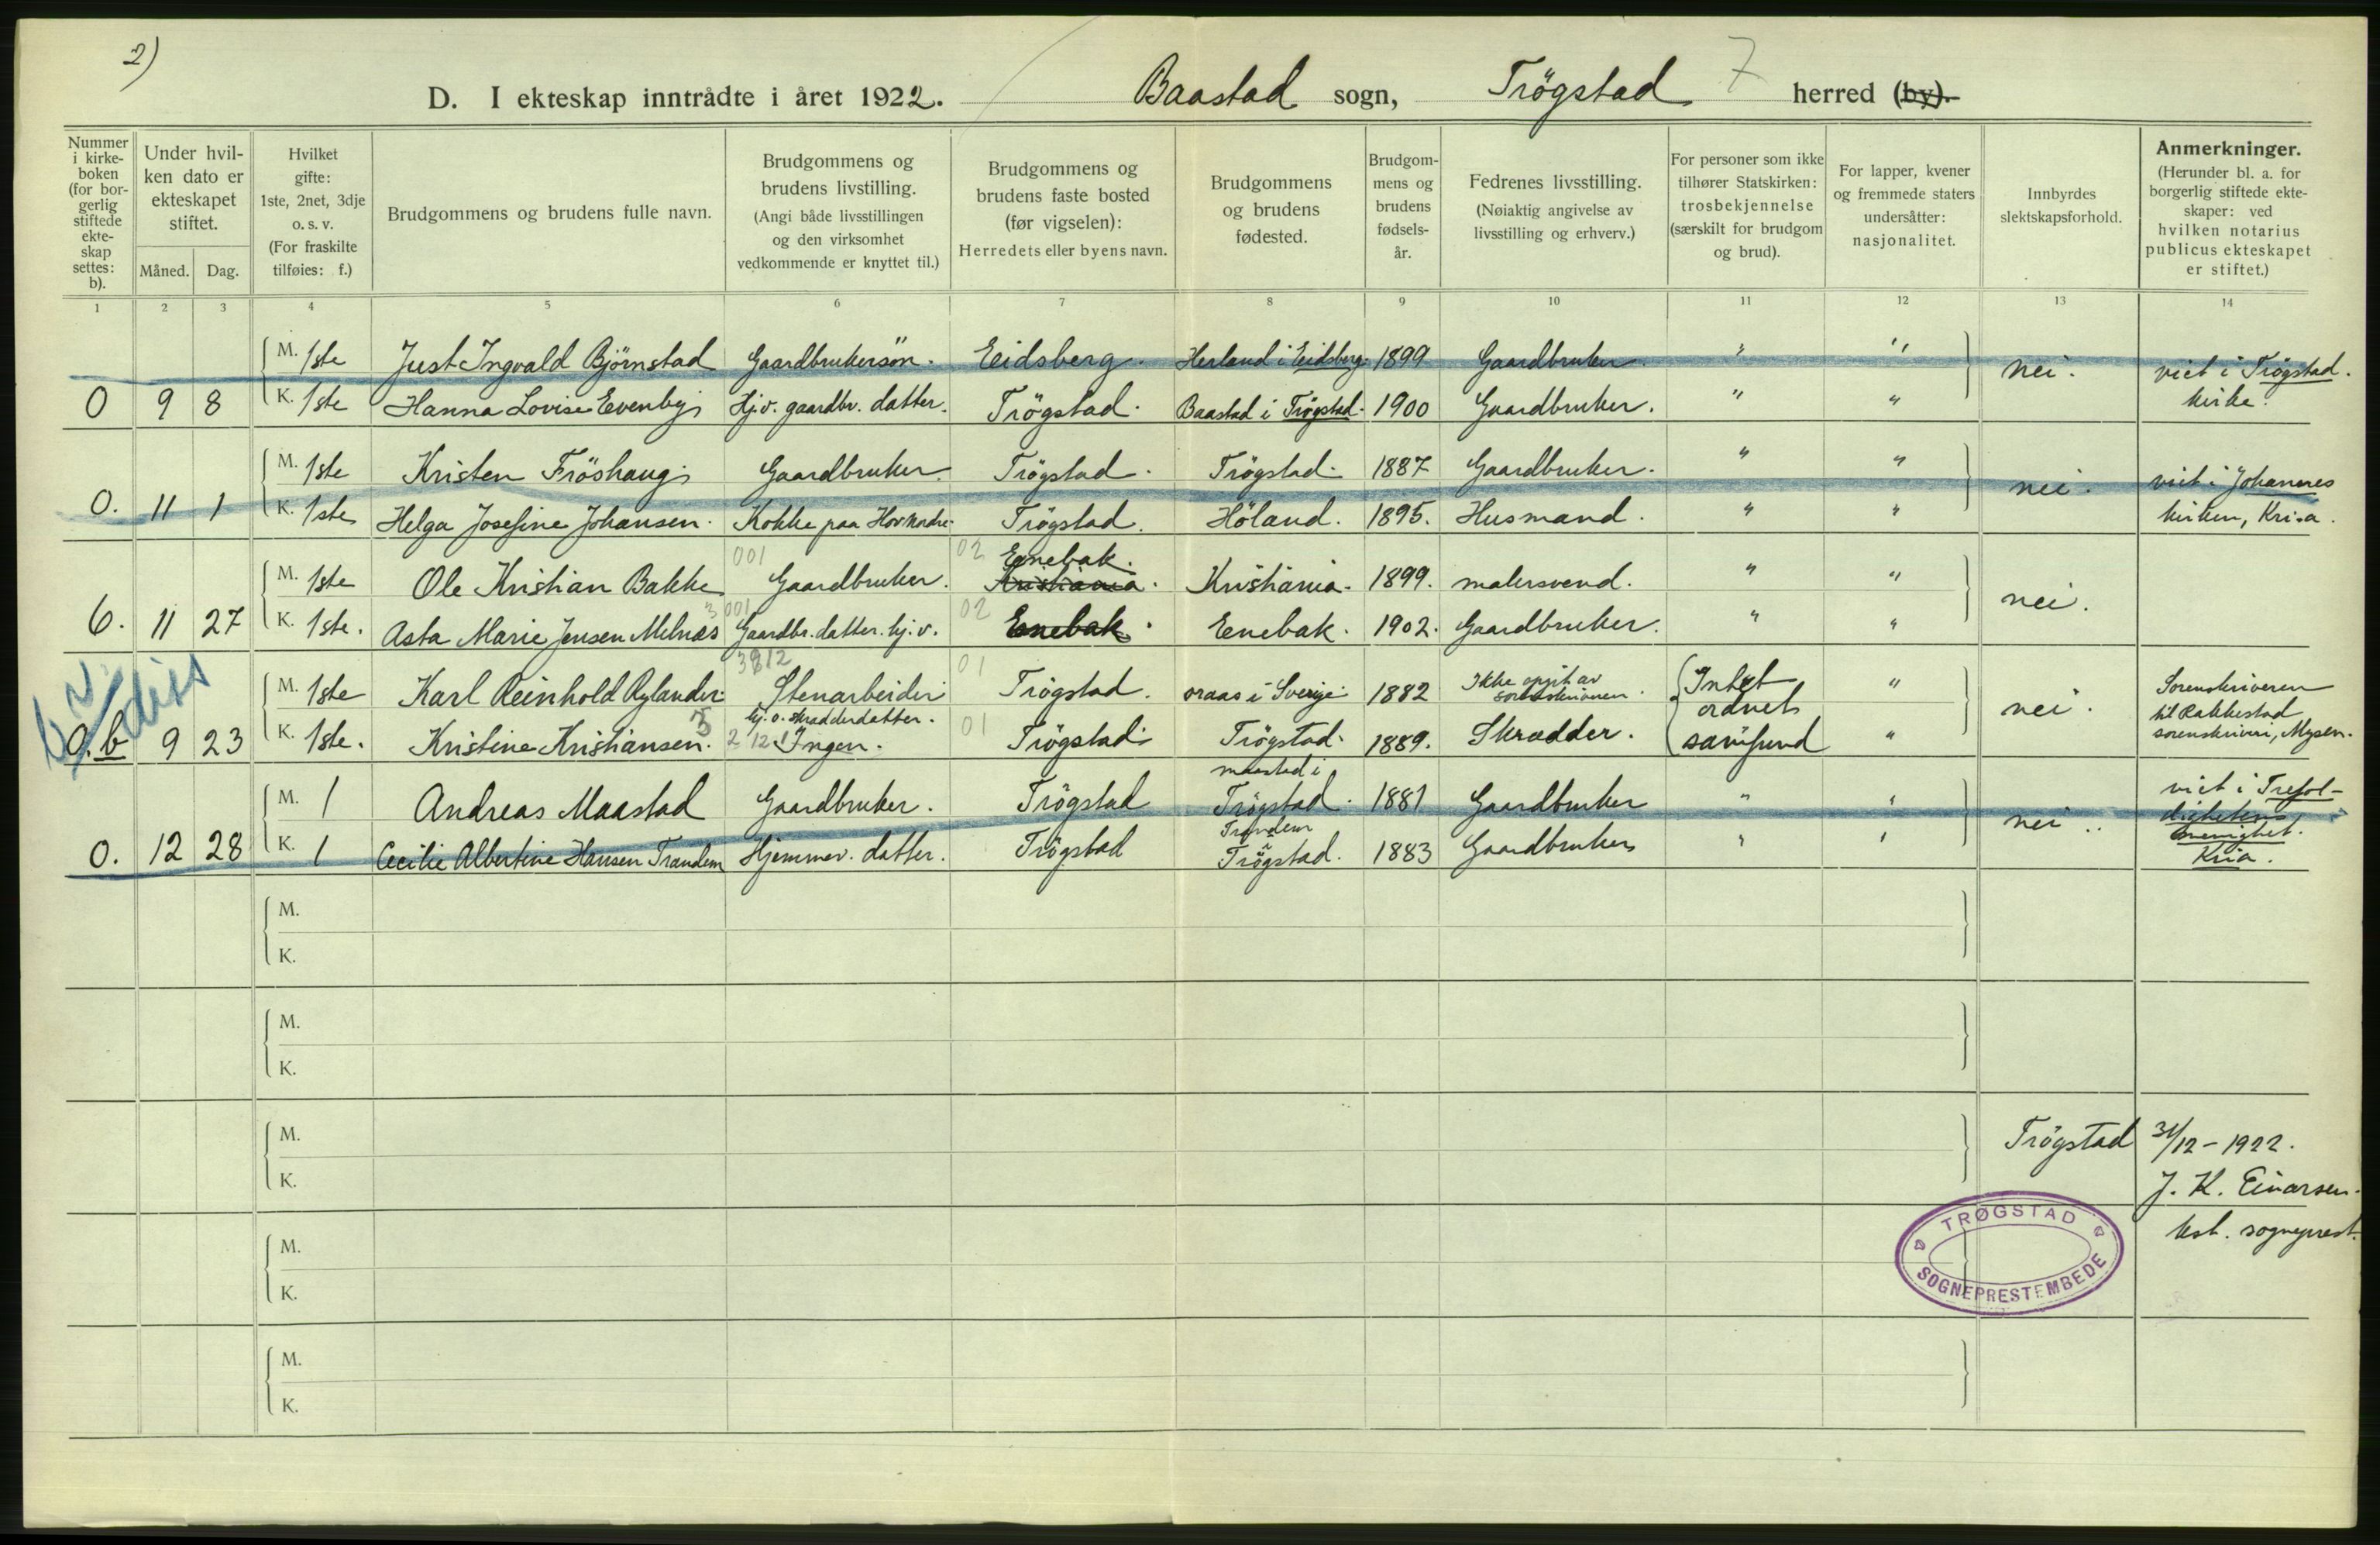 2)
D. I ekteskap inntrådte i året 1922. Baastad sogn, Trögstad 7 herred (by).
Nummer i kirke-boken (for bor-gerlig stiftede ekte-skap settes: b).
Under hvil-ken dato er ekteskapet stiftet.
Måned. Dag.
Hvilket gifte: 1ste, 2net, 3dje o. s. v. (For fraskilte tilføies: f.)
Brudgommens og brudens fulle navn.
Brudgommens og brudens livstilling. (Angi både livsstillingen og den virksomhet vedkommende er knyttet til.)
Brudgommens og brudens faste bosted (før vigselen): Herredets eller byens navn.
Brudgommens og brudens fødested.
Brudgom-mens og brudens fødsels-år.
Fedrenes livsstilling. (Nøiaktig angivelse av livsstilling og erhverv.)
For personer som ikke tilhører Statskirken: trosbekjennelse (særskilt for brudgom og brud).
For lapper, kvener og fremmede staters undersåtter: nasjonalitet.
Innbyrdes slektskapsforhold.
Anmerkninger. (Herunder bl. a. for borgerlig stiftede ekte-skaper: ved hvilken notarius publicus ekteskapet er stiftet.)
1 2 3 4 5 6 7 8 9 10 11 12 13 14
M. 1ste Just Ingvald Björnstad Gaardbrukersön. Eidsberg. Herland i Eidsberg. 1899 Gaardbruker " " nei. viet i Trögstad.
0 9 8 K. 1ste Hanna Lovise Evenby Hj.v. gaardbr. datter. Trögstad. Baastad i Trögstad. 1900 Gaardbruker. " " kirke.
M. 1ste Kristen Fröshaug Gaardbruker. Trögstad. Trögstad. 1887 Gaardbruker. " " nei. viet i Johannes
0. 11 1 K. 1ste Helga Josefine Johansen. Kokke paa Hov nordre. Trögstad. Höland. 1895. Husmand. " " kirken, Kr.i.a.
001 02 Enebak.
M. 1ste Ole Kristian Bakke Gaardbruker. Kristiania. Kristiania. 1899. malersvend. " " nei.
3 001 02
6. 11 27 K. 1ste. Asta Marie Jensen Melnæs Gaardbr. datter. hj. v. Enebak. Enebak. 1902. Gaardbruker. " "
3812 01
M. 1ste Karl Reinhold Rylander. Stenarbeider Trögstad. oraas i Sverige 1882 Ikke opgit av sorenskriveren. Intet ordnet " nei. Sorenskriveren til Rakkestad
hj. v. skrædderdatter.
0.b 9 23 K. 1ste. Kristine Kristiansen. 3 2 12 Ingen. 01 Trögstad. Trögstad. 1889. Skrædder. samfund " sorenskriveri, Mysen.
maastad i
M. 1 Andreas Maastad Gaardbruker. Trögstad Trögstad. 1881 Gaardbruker " " nei. viet i Trefol-
Trandem
0. 12 28 K. 1 Cecilie Albertine Hansen Trandem Hjemmev. datter. Trögstad Trögstad. 1883 Gaardbruker " " dighetens
Kria.
M.
K.
M.
K.
M. Trögstad 31/12 - 1922.
K. J. K. Einarsen.
M. kst. sogneprest.
K.
M.
K.
TRØGSTAD SOGNEPRESTEMBEDE